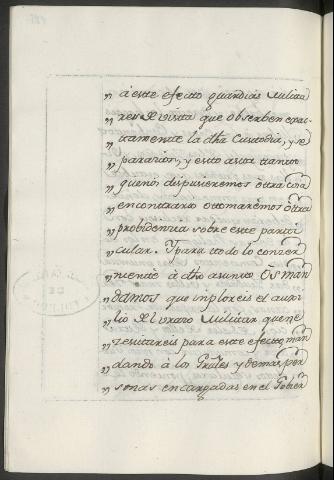 „ à este efecto guardias Milita
„ res de vista que observen exac
„ tamente la dha Custodia, y se
„ paracion, y esto assi entanto
„ que no dispusieremos otra cosa
„ encontrario o tomarémos otra
„ probidencia sobre este parti
„ cular. Y para todo lo conzer
„ niente à dho asunto Os man
„ damos que imploreis el auxi
„ lio del brazo Militar que ne
„ zesitareis para este efecto, man
„ dando à los Grales y demas per
„ sonas encargadas en el Gobier